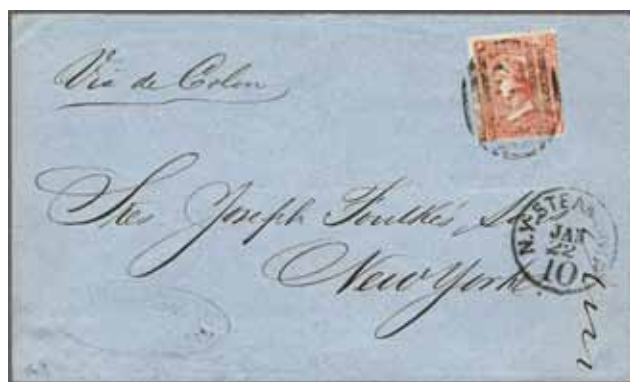 Via de Colon
Sres Joseph Foulke's
New York.
N.Y. STEAM
JAN
22
10